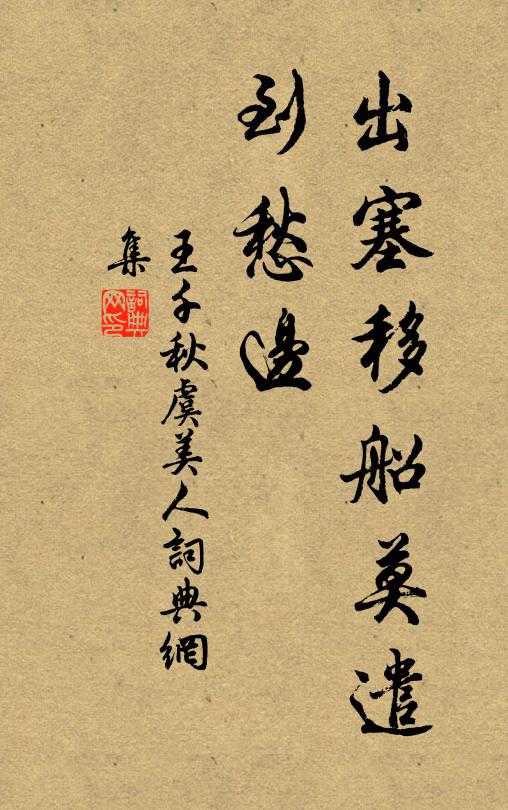 出塞移船莫遣
到愁邊
王千秋虞美人詞典網
集
詞典
网印